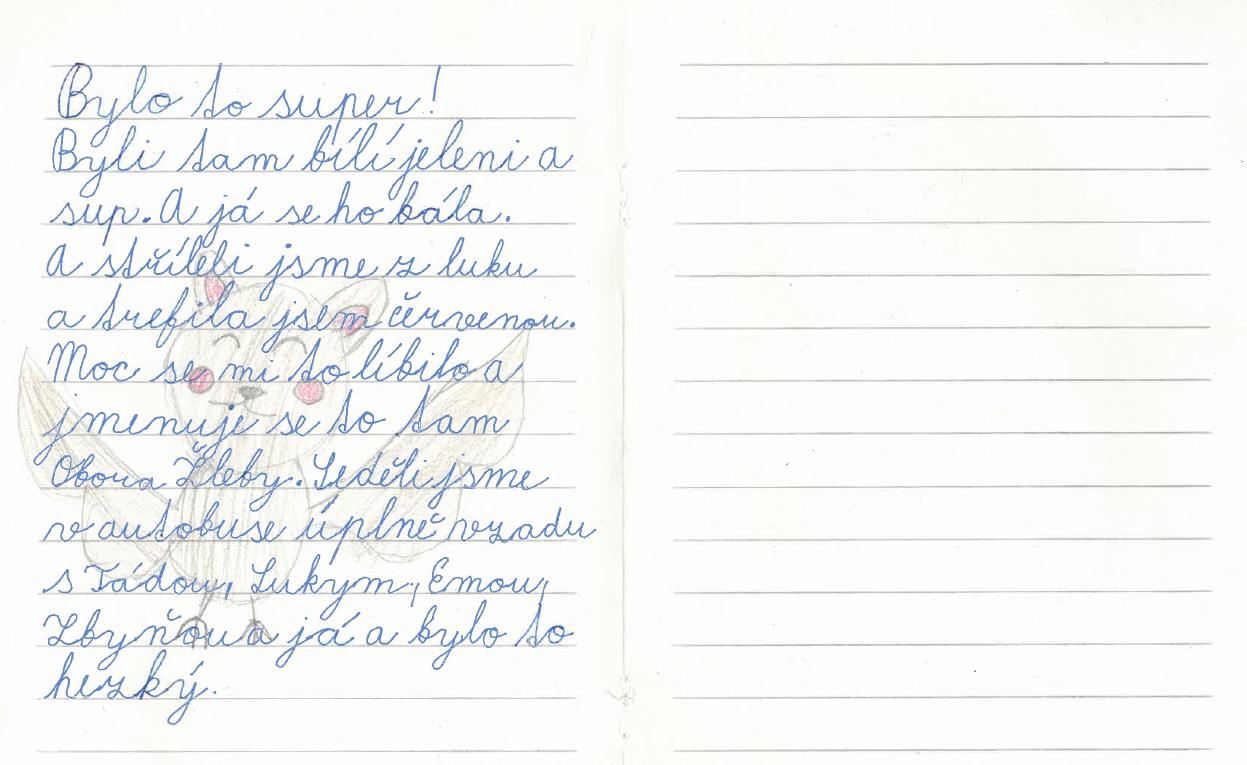 Bylo to super!
Byli tam bílí jeleni a
sup. A já se ho bála.
A stříleli jsme z luku
a trefila jsem červenou.
Moc se mi to líbilo a
jmenuje se to tam
Obora Žleby. Seděli jsme
v autobuse úplně vzadu
s Táďou, Lukym, Emou,
Zbyňou a já a bylo to
hezký.